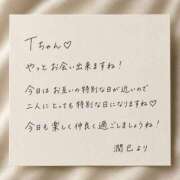 Tちゃん♡
やっとお会い出来ますね!
今日はお互いの特別な日が近いので
二人にとっても特別な日になりますね♡
今日も楽しく仲良く過ごしましょうね!
潤巳より